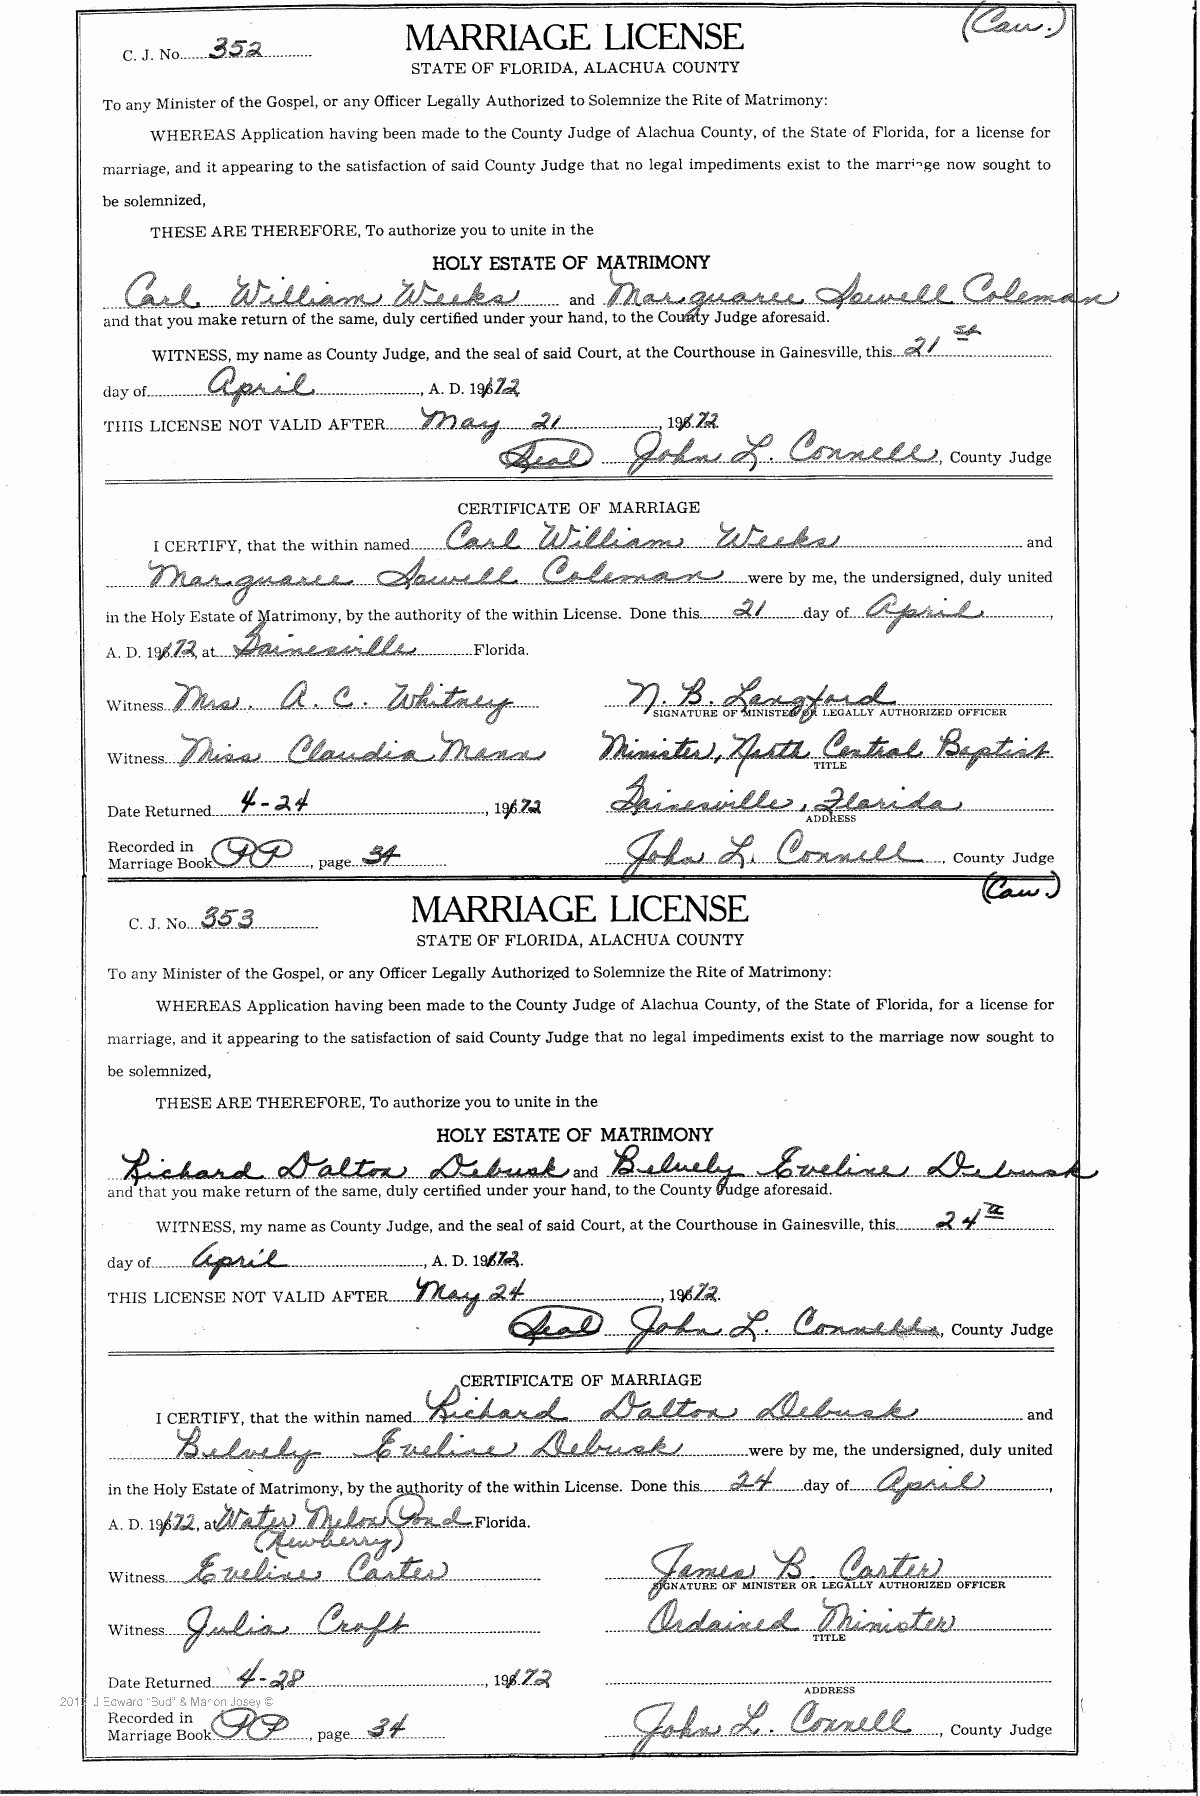 (Cau.)
C. J. No. 352
MARRIAGE LICENSE
STATE OF FLORIDA, ALACHUA COUNTY
To any Minister of the Gospel, or any Officer Legally Authorized to Solemnize the Rite of Matrimony:
WHEREAS Application having been made to the County Judge of Alachua County, of the State of Florida, for a license for
marriage, and it appearing to the satisfaction of said County Judge that no legal impediments exist to the marriage now sought to
be solemnized,
THESE ARE THEREFORE, To authorize you to unite in the
HOLY ESTATE OF MATRIMONY
Carl William Weeks and Marguaree Sewell Coleman
and that you make return of the same, duly certified under your hand, to the County Judge aforesaid.
WITNESS, my name as County Judge, and the seal of said Court, at the Courthouse in Gainesville, this 21st
day of April, A. D. 1972
THIS LICENSE NOT VALID AFTER May 21, 1972
Seal John L. Connell, County Judge
CERTIFICATE OF MARRIAGE
I CERTIFY, that the within named Carl William Weeks and
Marguaree Sewell Coleman were by me, the undersigned, duly united
in the Holy Estate of Matrimony, by the authority of the within License. Done this 21 day of April,
A. D. 1972, at Gainesville Florida.
Witness Mrs. A. C. Whitney N. B. Langford
SIGNATURE OF MINISTER OR LEGALLY AUTHORIZED OFFICER
Witness Miss Claudia Mann Minister, North Central Baptist
TITLE
Date Returned 4-24, 1972 Gainesville, Florida
ADDRESS
Recorded in
Marriage Book PP, page 34 John L. Connell, County Judge
(Cau.)
C. J. No. 353
MARRIAGE LICENSE
STATE OF FLORIDA, ALACHUA COUNTY
To any Minister of the Gospel, or any Officer Legally Authorized to Solemnize the Rite of Matrimony:
WHEREAS Application having been made to the County Judge of Alachua County, of the State of Florida, for a license for
marriage, and it appearing to the satisfaction of said County Judge that no legal impediments exist to the marriage now sought to
be solemnized,
THESE ARE THEREFORE, To authorize you to unite in the
HOLY ESTATE OF MATRIMONY
Richard Dalton Debusk and Belvely Eveline Debusk
and that you make return of the same, duly certified under your hand, to the County Judge aforesaid.
WITNESS, my name as County Judge, and the seal of said Court, at the Courthouse in Gainesville, this 24th
day of April, A. D. 1972.
THIS LICENSE NOT VALID AFTER May 24, 1972.
Seal John L. Connell, County Judge
CERTIFICATE OF MARRIAGE
I CERTIFY, that the within named Richard Dalton Debusk and
Belvely Eveline Debusk were by me, the undersigned, duly united
in the Holy Estate of Matrimony, by the authority of the within License. Done this 24 day of April,
A. D. 1972, at Water Melon Pond Florida.
(Newberry)
Witness Eveline Carter James B. Carter
SIGNATURE OF MINISTER OR LEGALLY AUTHORIZED OFFICER
Witness Julia Craft Ordained Minister
TITLE
Date Returned 4-28, 1972
ADDRESS
J Edward "Bud" & Marion Josey ©
Recorded in
Marriage Book PP, page 34 John L. Connell, County Judge